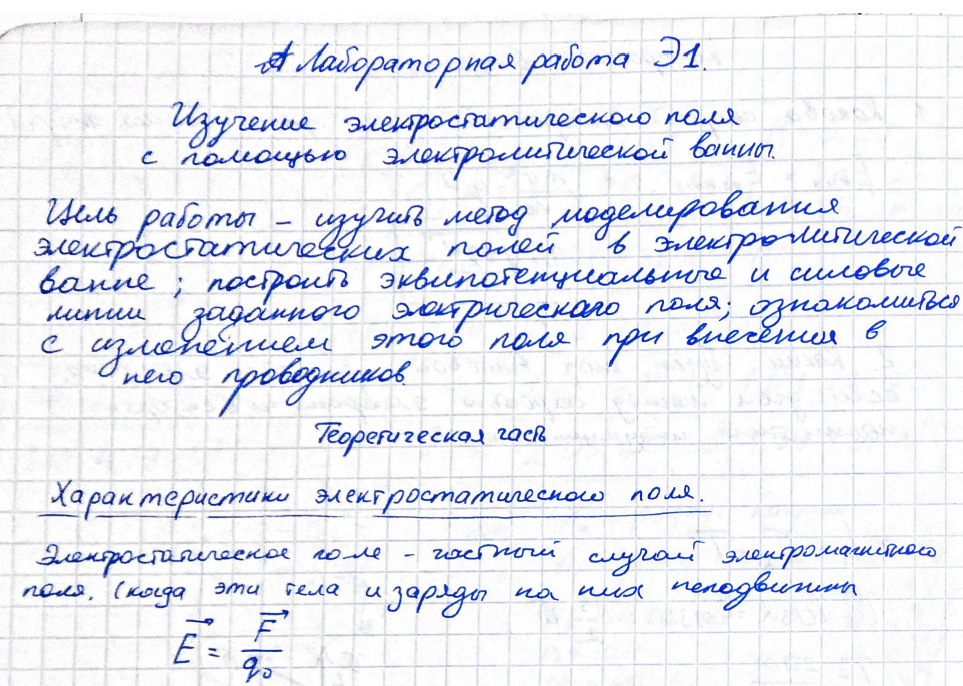 Лабораторная работа Э1.
Изучение электростатического поля
с помощью электролитической ванны.
Цель работы – изучить метод моделирования
электростатических полей в электролитической
ванне; построить эквипотенциальные и силовые
линии заданного электрического поля; ознакомиться
с изменением этого поля при внесении в
него проводников.
Теоретическая часть
Характеристики электростатического поля.
Электростатическое поле – частный случай электромагнитного
поля. (когда эти тела и заряды на них неподвижны
E = F / q₀